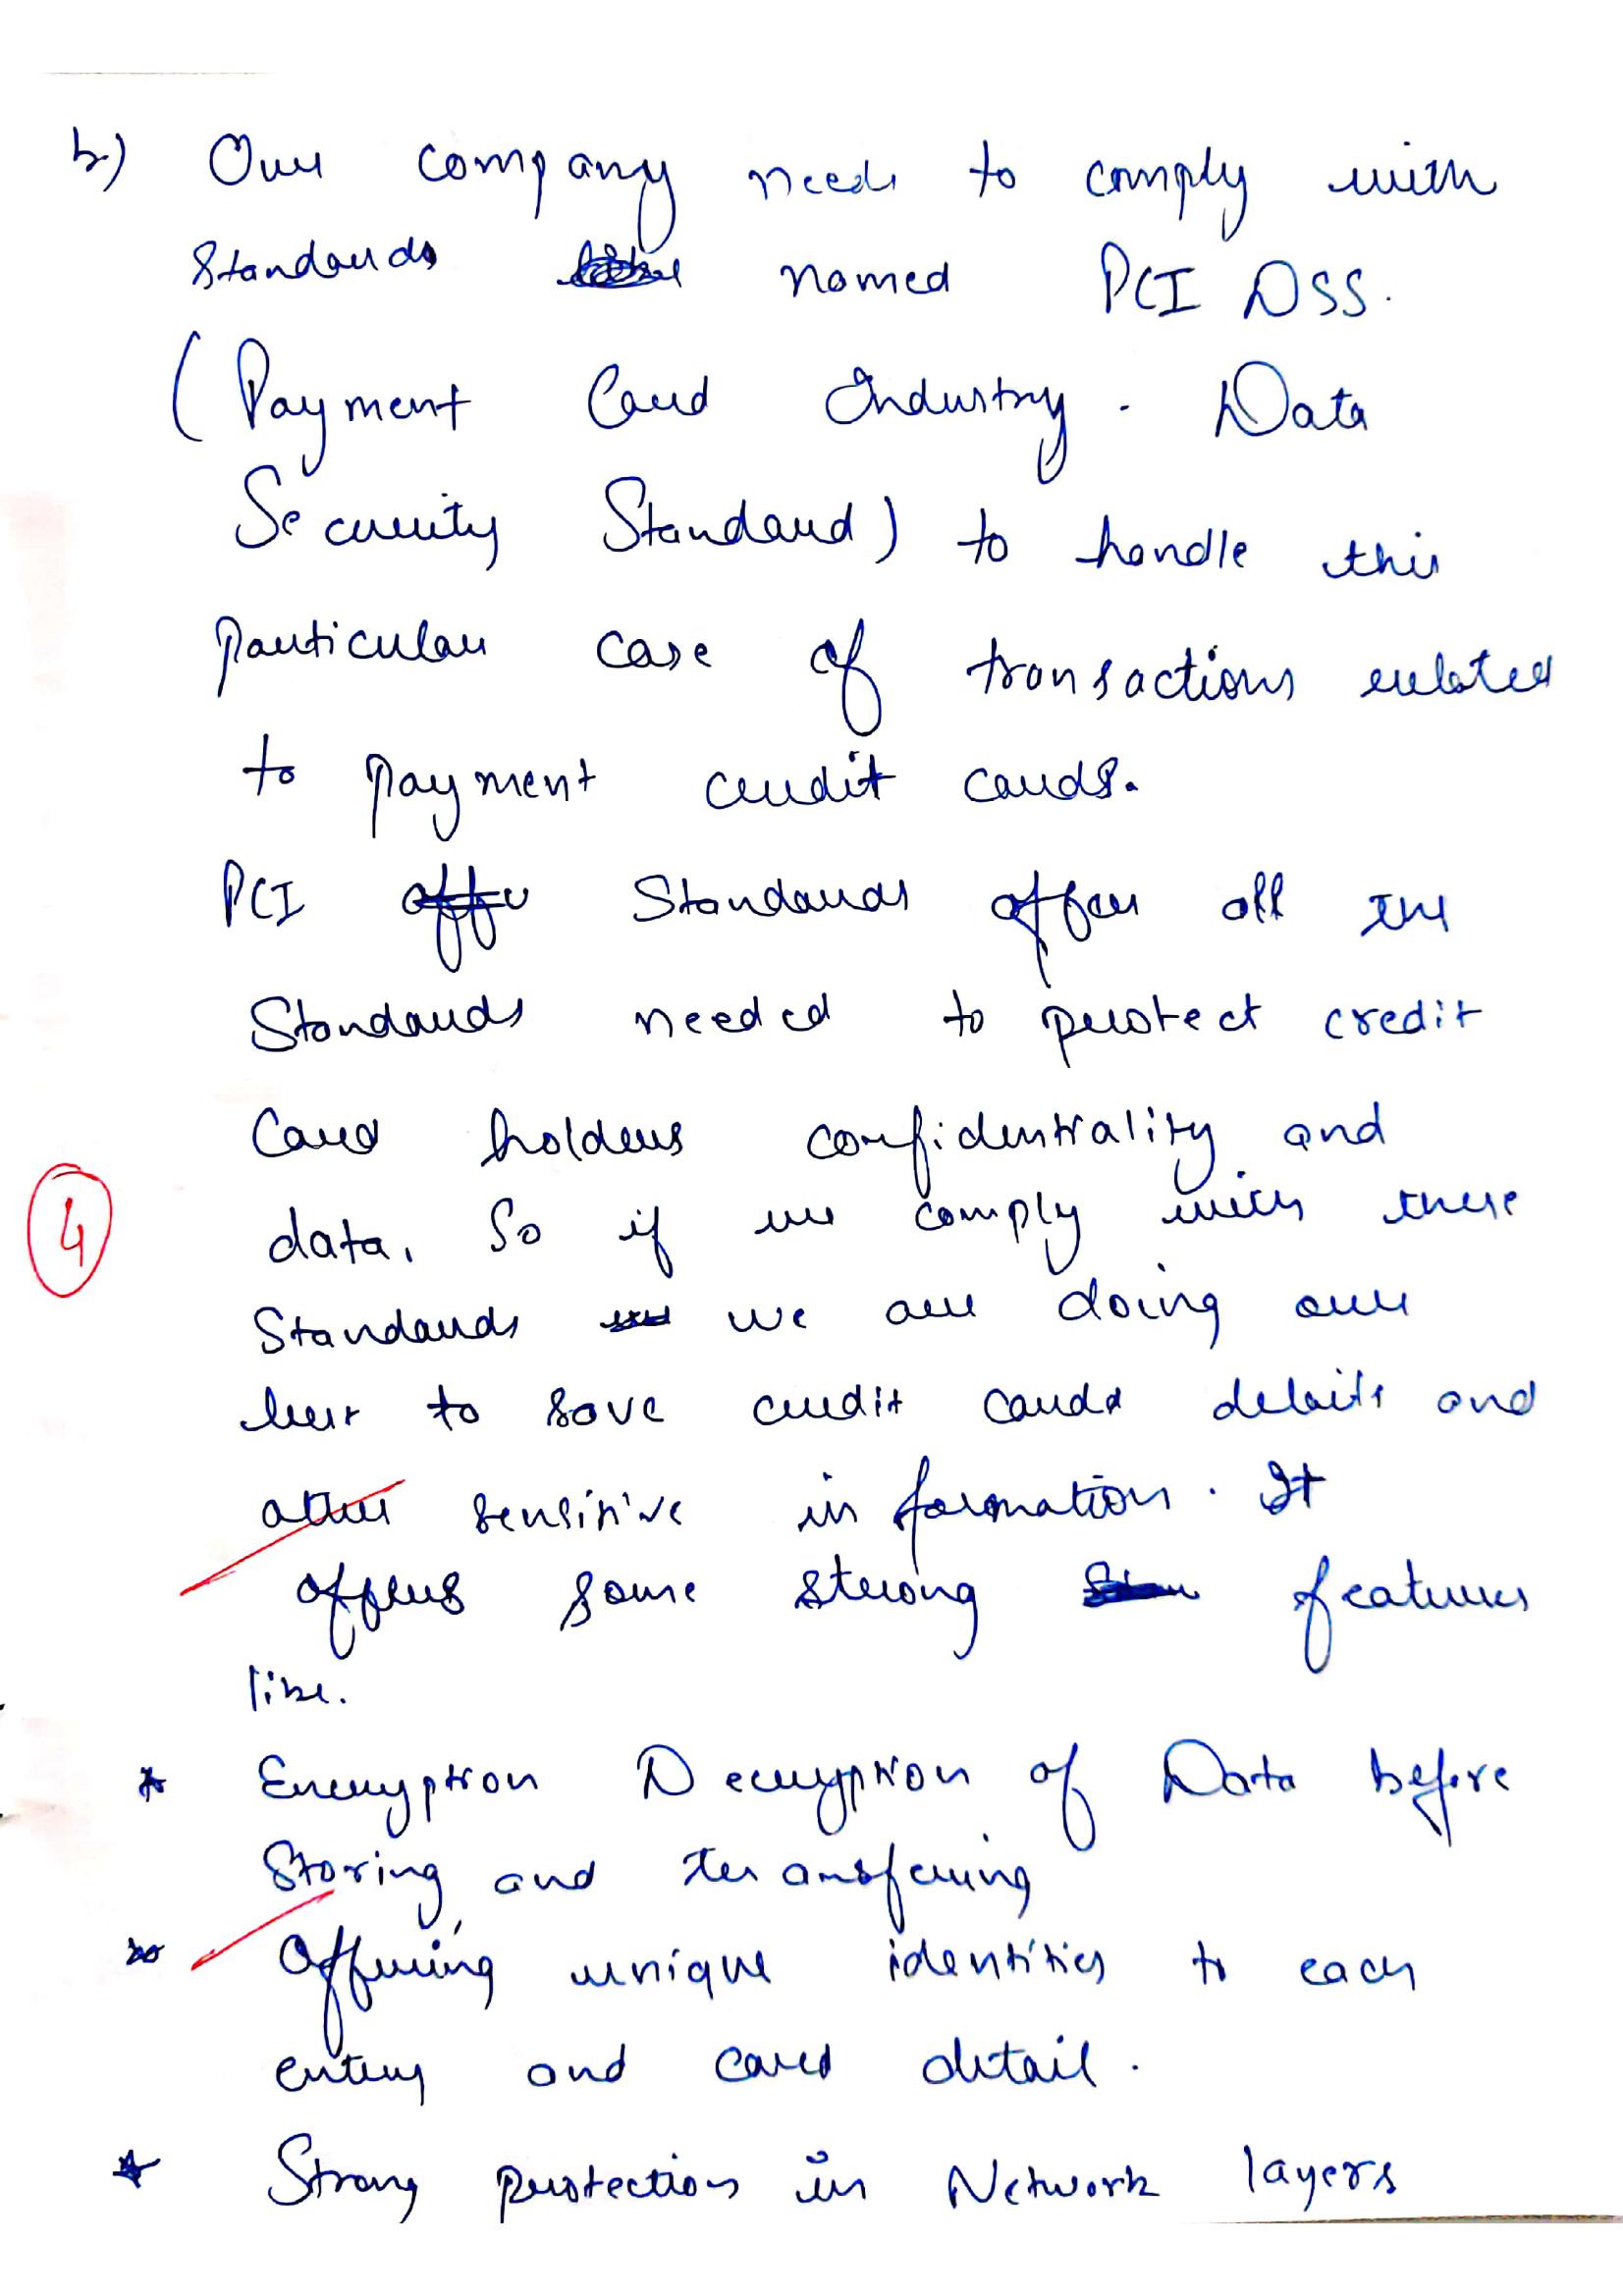 b) Our company needs to comply with
Standards named PCI DSS.
(Payment Card Industry. Data
Security Standard) to handle this
particular case of transactions related
to payment credit cards.
PCI offe Standards offer all the
Standards needed to protect credit
Card holders confidentiality and
data. So if we comply with these
Standards we are doing our
best to save credit cards details and
other sensitive information. It
offers some strong features
like.
* Encryption Decryption of Data before
Storing and transfering
* Offering unique identities to each
entery and card detail.
* Strong protection in Network layers
4